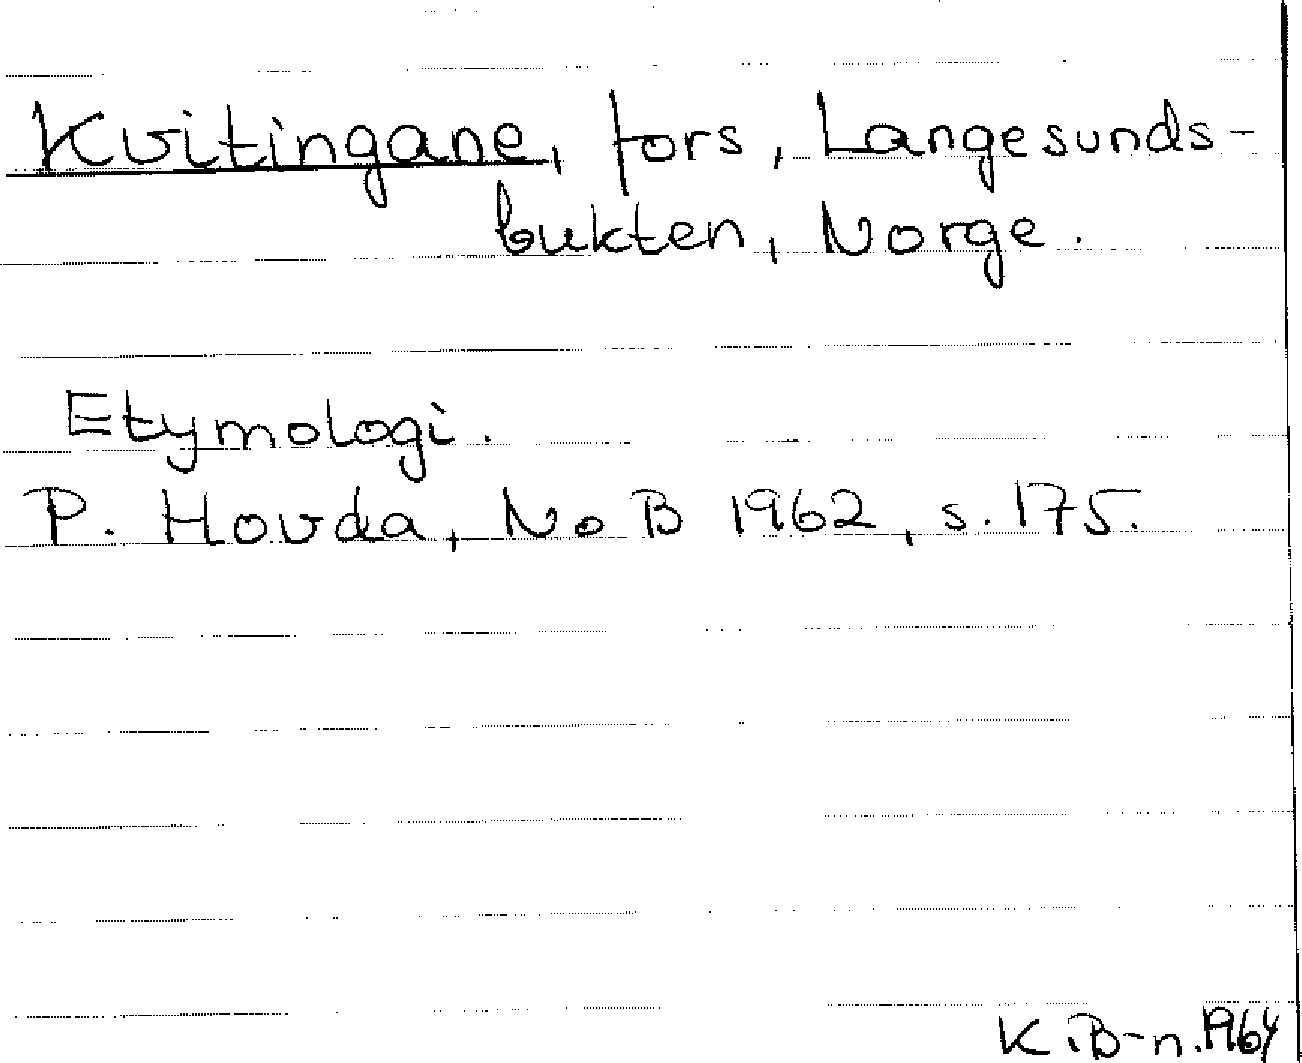 Kvitingane, fors, Langesunds-
bukten, Norge.
Etymologi.
P. Hovda, NoB 1962, s. 175.
K.B-n. 1964